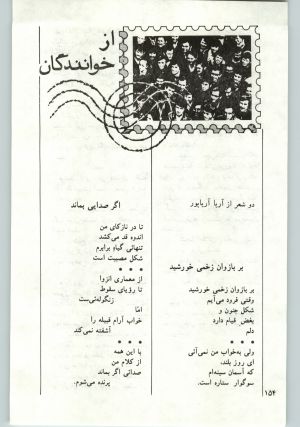 از
خوانندگان
دو شعر از آریا آریاپور
بر بازوان زخمی خورشید
بر بازوان زخمی خورشید
وقتی فرود می‌آیم
شکل جنون و
بغض قیام دارد
دلم
● ● ●
ولی به‌خواب من نمی‌آئی
ای روز بلند.
که آسمان سینه‌ام
سوگوار ستاره است.
اگر صدایی بماند
تا در نازکای من
اندوه قد می‌کشد
تنهائی گیاه برابرم
شکل مصیبت است
● ● ●
از معماری انزوا
تا رؤیای سقوط
زنگوله‌ئی‌ست
امّا
خواب آرام قبیله را
آشفته نمی‌کند
● ● ●
با این همه
از کلام من
صدائی اگر بماند
پرنده می‌شوم.
۱۵۴